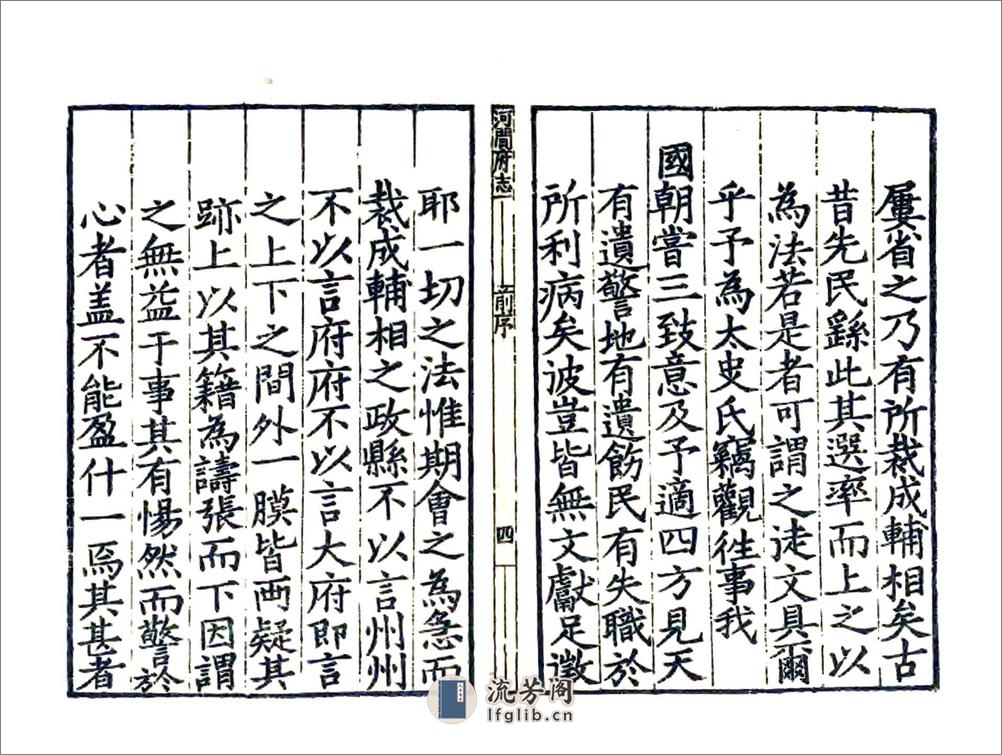 屢省之乃有所裁成輔相矣古
昔先民繇此其選率而上之以
為法若是者可謂之徒文具爾
乎予為太史氏竊觀往事我
國朝嘗三致意及予適四方見天
有遺警地有遺飭民有失職於
所利病矣彼豈皆無文獻足徵
河間府志
前序
四
耶一切之法惟期會之為急而
裁成輔相之政縣不以言州州
不以言府府不以言大府即言
之上下之間外一膜皆兩疑其
跡上以其籍為譸張而下因謂
之無益于事其有惕然而警於
心者盖不能盈什一焉其甚者
流芳阁
lfglib.cn